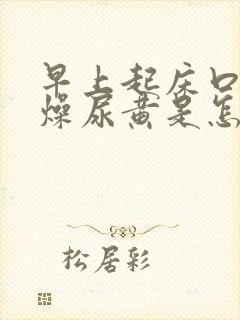 早上起床口
燥尿黄是怎
松居彩